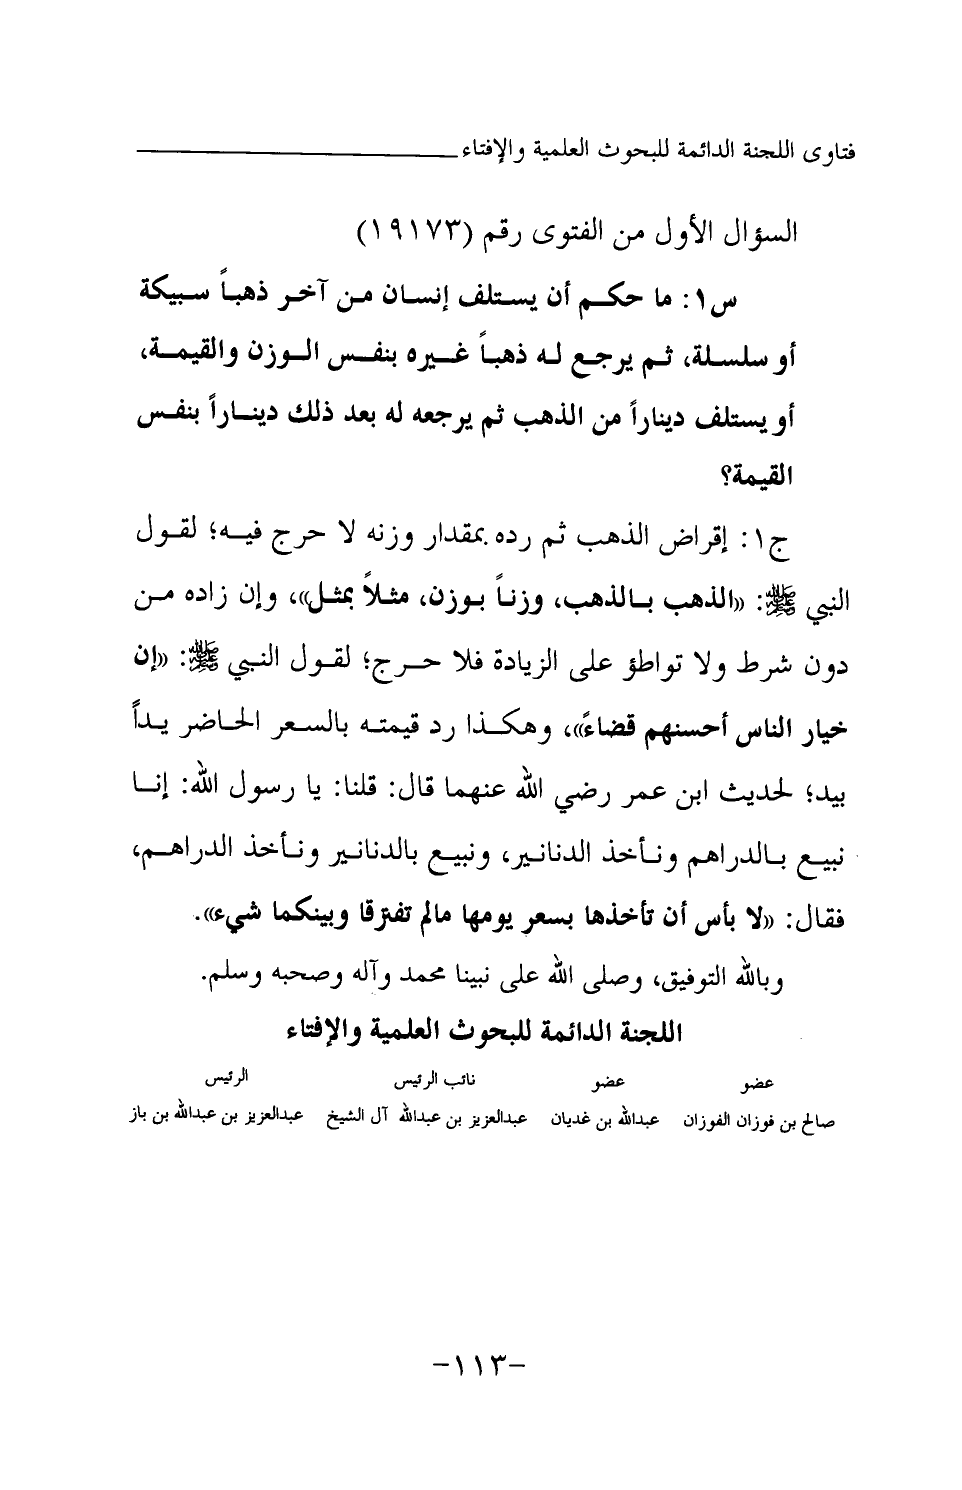 فتاوى اللجنة الدائمة للبحوث العلمية والإفتاء
السؤال الأول من الفتوى رقم (١٩١٧٣)
س١: ما حكم أن يستلف إنسان من آخر ذهباً سبيكة
أو سلسلة، ثم يرجع له ذهباً غيره بنفس الوزن والقيمة،
أو يستلف ديناراً من الذهب ثم يرجعه له بعد ذلك ديناراً بنفس
القيمة؟
ج١: إقراض الذهب ثم رده بمقدار وزنه لا حرج فيه؛ لقول
النبي ﷺ: «الذهب بالذهب، وزناً بوزن، مثلاً بمثل»، وإن زاده من
دون شرط ولا تواطؤ على الزيادة فلا حرج؛ لقول النبي ﷺ: «إن
خيار الناس أحسنهم قضاءً»، وهكذا رد قيمته بالسعر الحاضر يداً
بيد؛ لحديث ابن عمر رضي الله عنهما قال: قلنا: يا رسول الله: إنا
نبيع بالدراهم ونأخذ الدنانير، ونبيع بالدنانير ونأخذ الدراهم،
فقال: «لا بأس أن تأخذها بسعر يومها مالم تفترقا وبينكما شيء».
وبالله التوفيق، وصلى الله على نبينا محمد وآله وصحبه وسلم.
اللجنة الدائمة للبحوث العلمية والإفتاء
عضو عضو نائب الرئيس الرئيس
صالح بن فوزان الفوزان عبدالله بن غديان عبدالعزيز بن عبدالله آل الشيخ عبدالعزيز بن عبدالله بن باز
-١١٣-